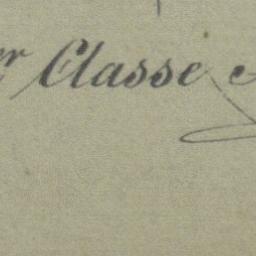 er Classe